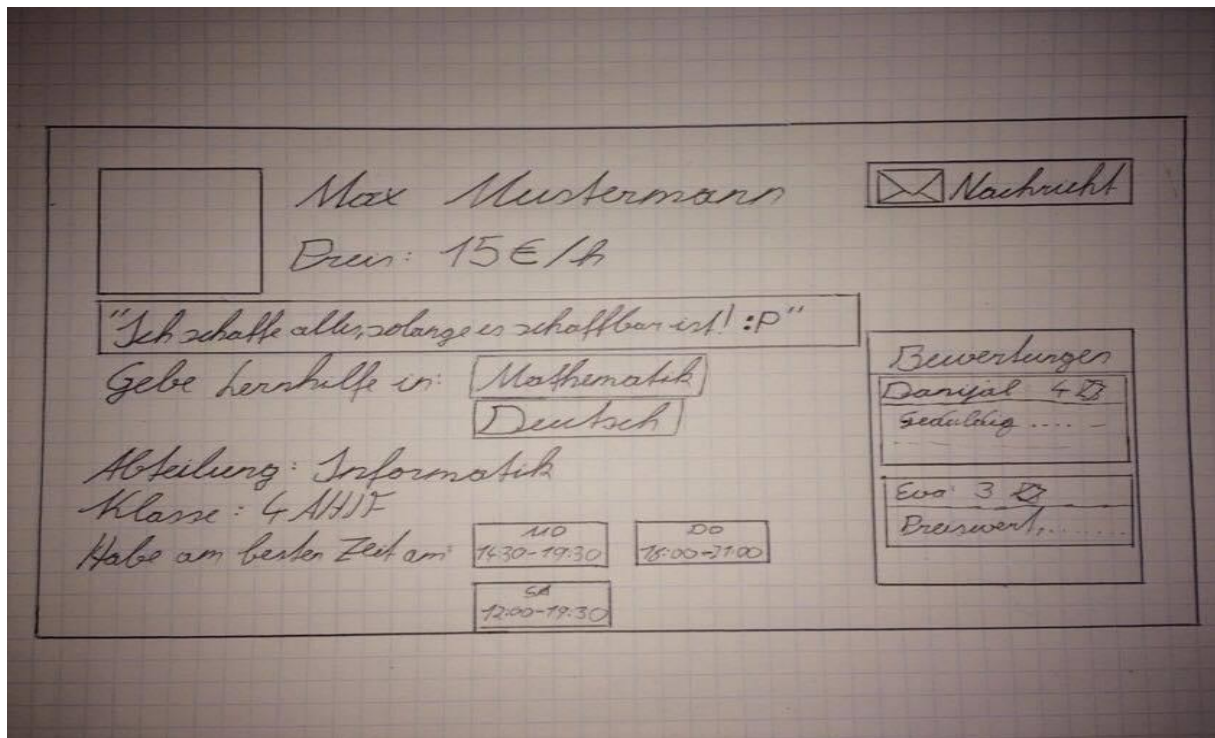 Max Mustermann
Preis: 15 €/h
Nachricht
"Ich schaffe alles, solange es schaffbar ist! :P"
Gebe Lernhilfe in: Mathematik
Deutsch
Abteilung: Informatik
Klasse: 4 AHIF
Habe am besten Zeit am:
MO
14:30-19:30
DO
18:00-21:00
SA
12:00-19:30
Bewertungen
Danijal 4
Geduldig .....
Eva 3
Preiswert, .......